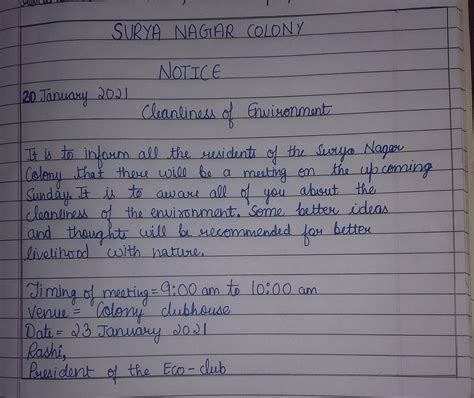 SURYA NAGAR COLONY
NOTICE
20 January 2021
Cleanliness of Environment
It is to inform all the residents of the Surya Nagar
Colony that there will be a meeting on the upcoming
Sunday. It is to aware all of you about the
cleanliness of the environment. Some better ideas
and thoughts will be recommended for better
livelihood with nature.
Timing of meeting = 9:00 am to 10:00 am
Venue = Colony clubhouse
Date = 23 January 2021
Rashi,
President of the Eco-club